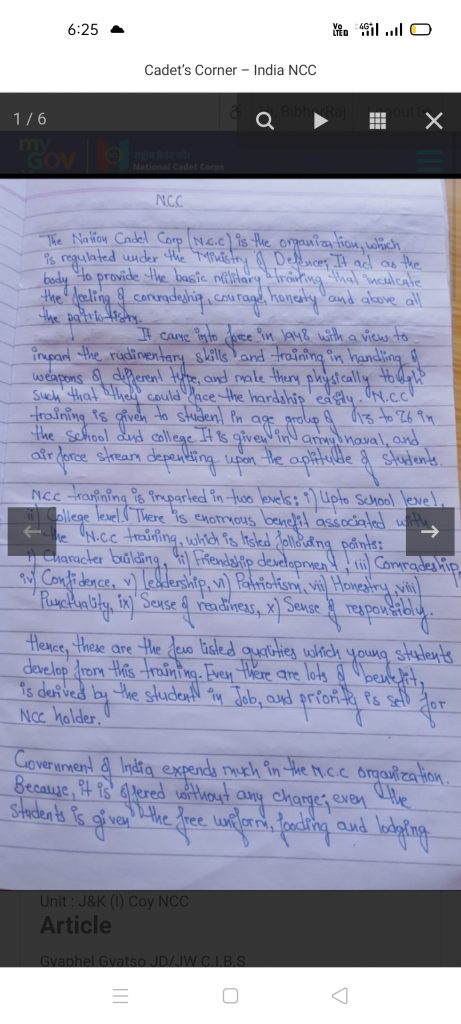 6:25
Vo LTED 4G+
Cadet's Corner – India NCC
1 / 6
BibhorRaj
my GOV
राष्ट्रीय कैडेट कोर
National Cadet Corps
NCC
The Nation Cadel Corp (N.C.C) is the organization, which
is regulated under the Ministry of Defence, It act as the
body to provide the basic military training that inculcate
the feeling of comradeship, courage, honesty and above all
the
It came into force in 1948 with a view to
impart the rudimentary skills and training in handling of
weapons of different type, and make them physically tough
such that they could face the hardship easily. N.CC
training is given to student in age group of 13 to 26 in
the school and college. It is given in army, naval, and
air force stream depending upon the aptitude of students.
NCC tranining is imparted in two levels: i) Upto School level,
ii) College level. There is enormous benefit associated with
the N.CC training, which is listed following points:
i) Character building, ii) Friendship development, iii) Comradeship,
iv) Confidence, v) leadership, vi) Patriotism, vii) Honestry, viii)
Punctuality, ix) Sense of readiness, x) Sense of responsibly.
Hence, these are the few listed qualities which young students
develop from this training. Even there are lots of benefit,
is derived by the student in Job, and priority is set for
NCC holder.
Government of India expends much in the N.C.C organization.
Because, it is offered without any charge; even the
students is given the free uniform, fooding and lodging
Unit : J&K (I) Coy NCC
Article
Gyaphel Gyatso JD/JW C.I.B.S